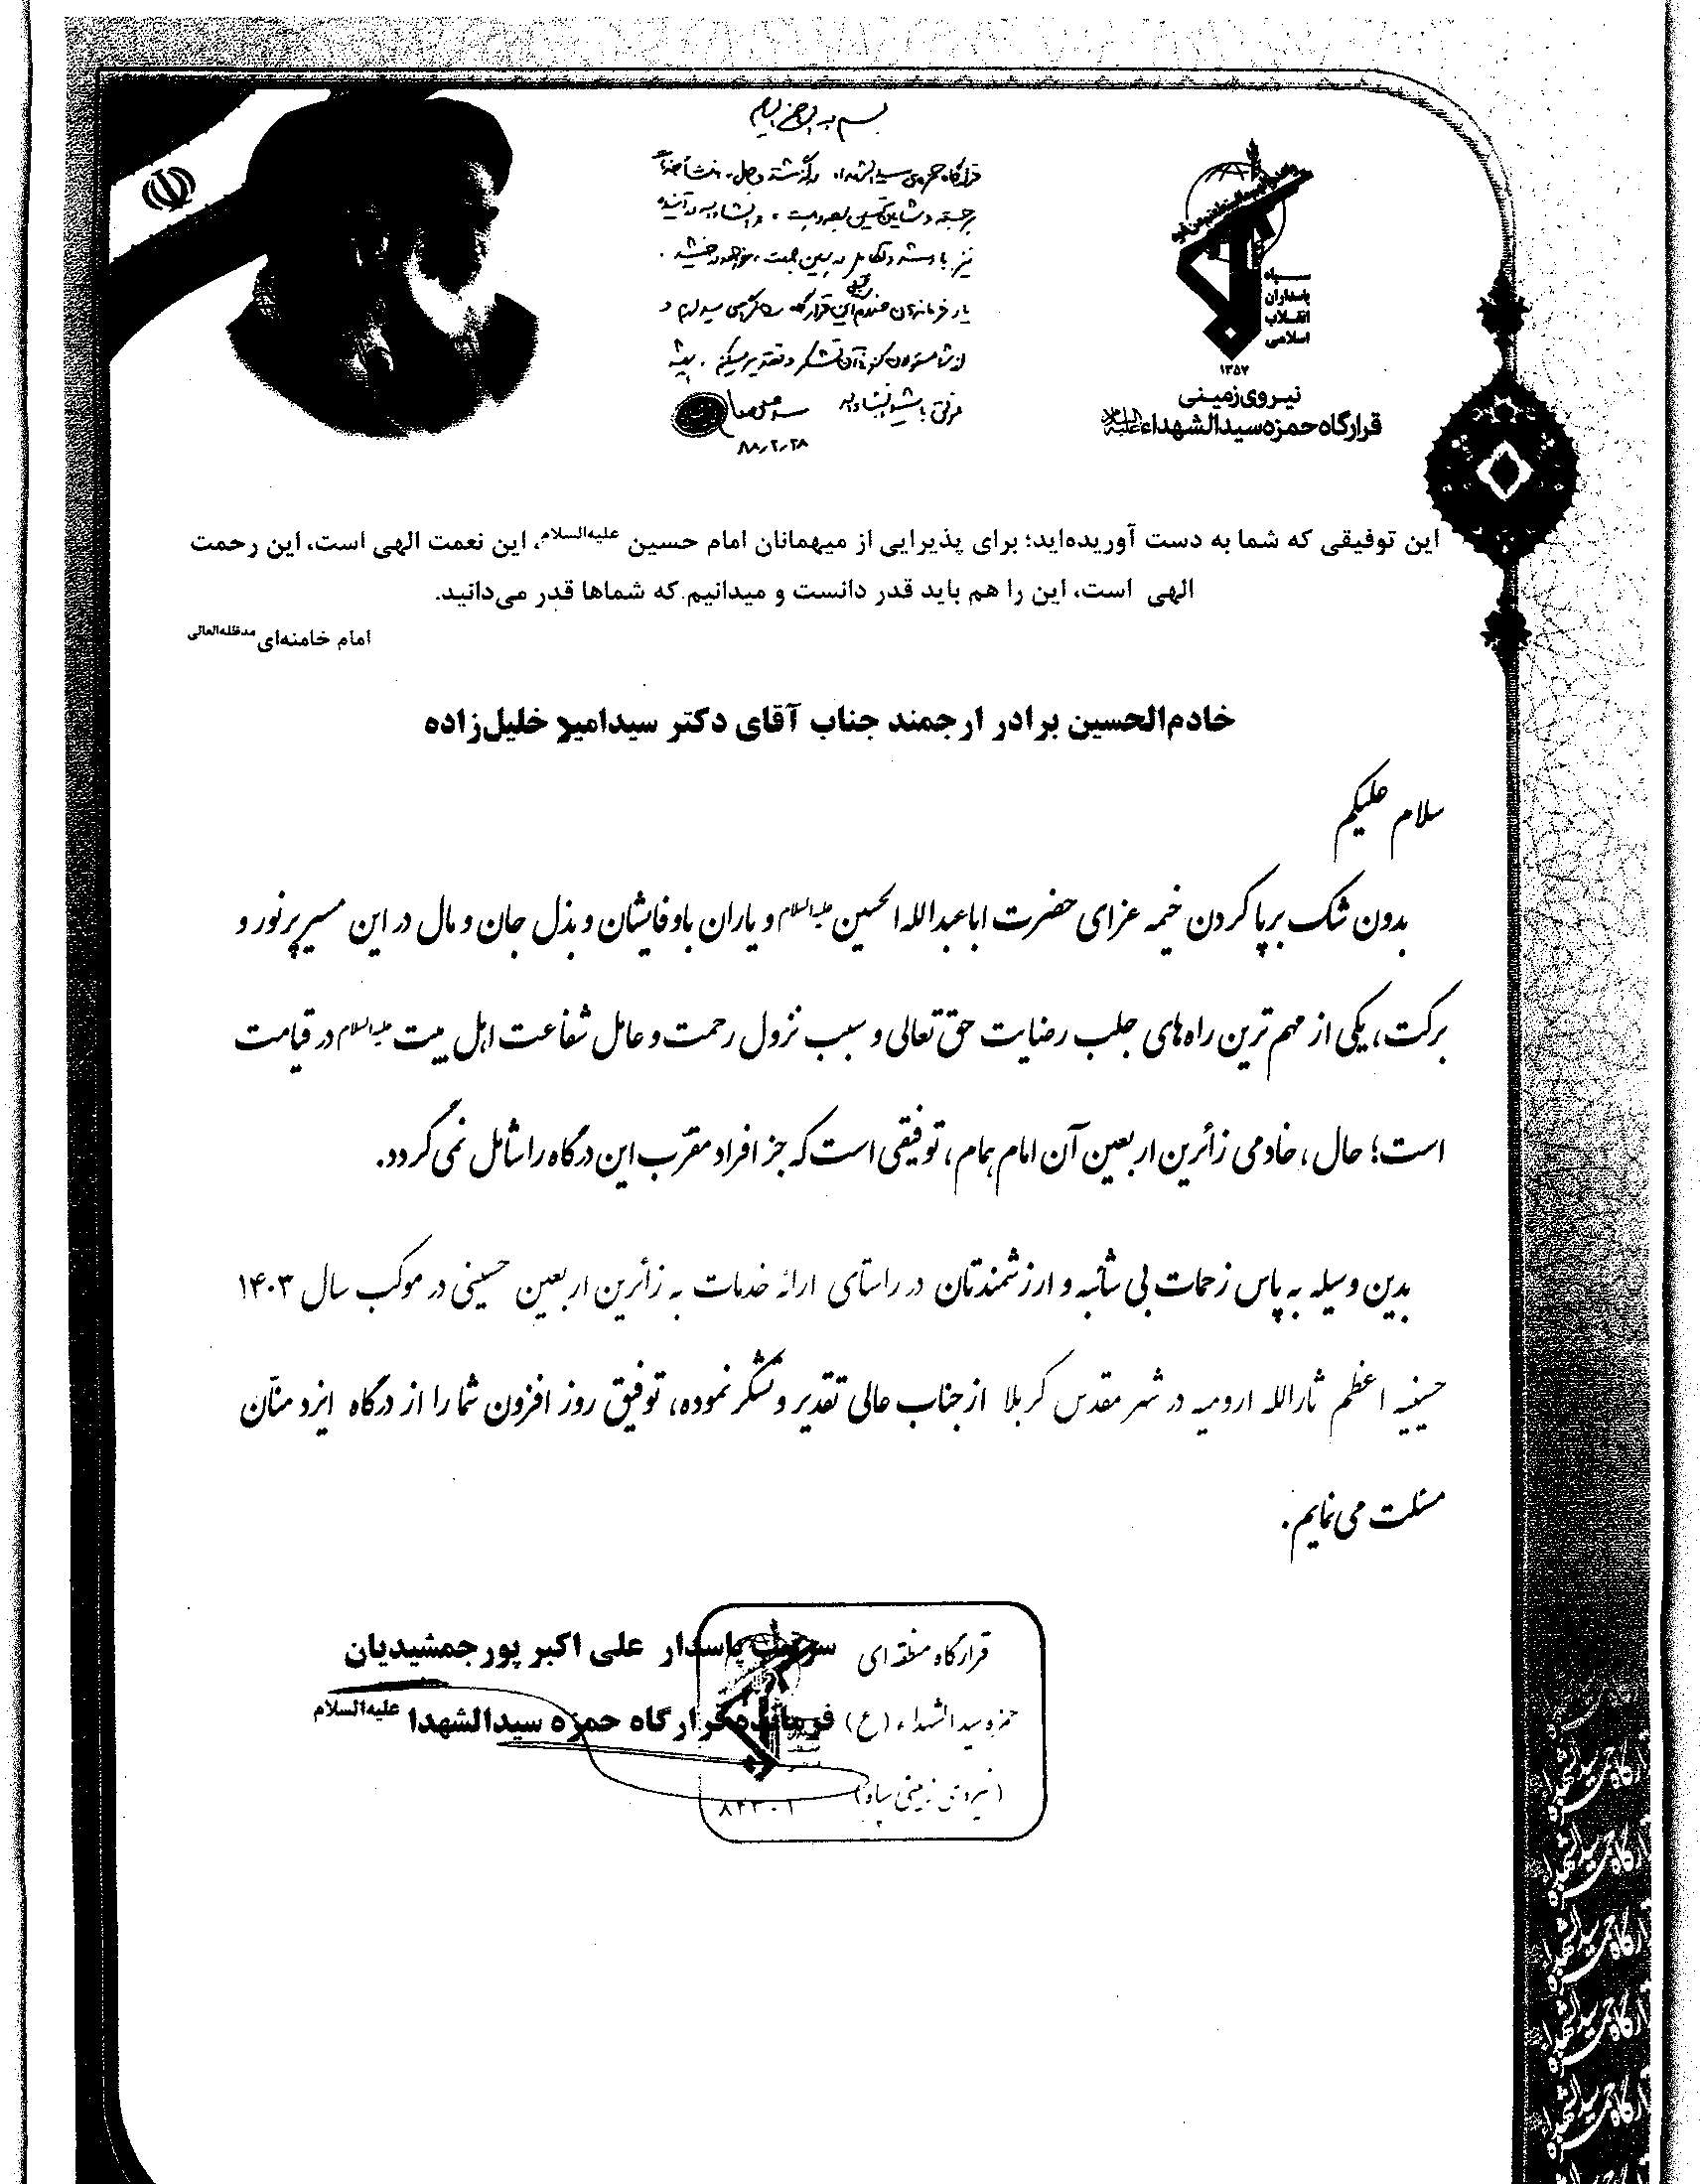 سپاه
پاسداران
انقلاب
اسلامی
۱۳۵۷
نیروی زمینی
قرارگاه حمزه سیدالشهداء علیه‌السلام
۸۸٫۲٫۲۸
این توفیقی که شما به دست آوریده‌اید؛ برای پذیرایی از میهمانان امام حسین علیه‌السلام، این نعمت الهی است، این رحمت
الهی است، این را هم باید قدر دانست و میدانیم که شماها قدر می‌دانید.
امام خامنه‌ای مدظله‌العالی
خادم‌الحسین برادر ارجمند جناب آقای دکتر سیدامیر خلیل‌زاده
سلام علیکم
بدون شک برپا کردن خیمه عزای حضرت اباعبدالله الحسین علیه‌السلام و یاران باوفایشان و بذل جان و مال در این مسیر پرنور و
برکت، یکی از مهم ترین راه‌های جلب رضایت حق تعالی و سبب نزول رحمت و عامل شفاعت اهل بیت علیه‌السلام در قیامت
است؛ حال، خادمی زائرین اربعین آن امام همام، توفیقی است که جز افراد مقرّب این درگاه را شامل نمی گردد.
بدین وسیله به پاس زحمات بی شائبه و ارزشمندتان در راستای ارائه خدمات به زائرین اربعین حسینی در موکب سال ۱۴۰۳
حسینیه اعظم ثارالله ارومیه در شهر مقدس کربلا از جناب عالی تقدیر و تشکر نموده، توفیق روز افزون شما را از درگاه ایزد منّان
مسئلت می نمایم.
سرتیپ پاسدار علی اکبر پورجمشیدیان
فرمانده قرارگاه حمزه سیدالشهدا علیه‌السلام
قرارگاه منطقه ای
حمزه سیدالشهداء (ع)
(نیروی زمینی سپاه)